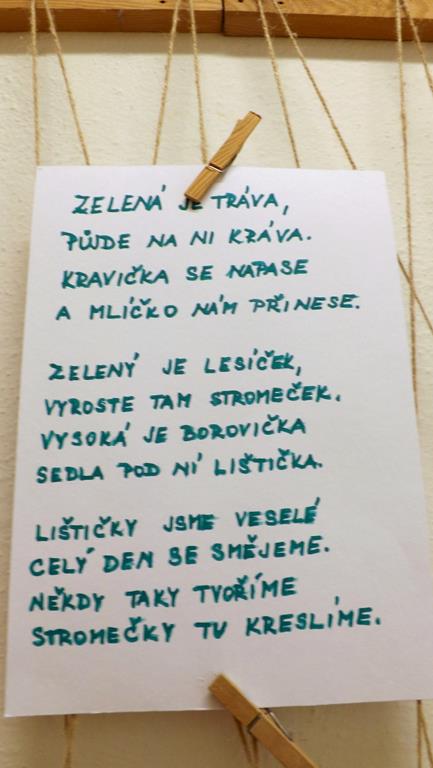 ZELENÁ JE TRÁVA,
PŮJDE NA NI KRÁVA.
KRAVIČKA SE NAPASE
A MLÍČKO NÁM PŘINESE.
ZELENÝ JE LESÍČEK,
VYROSTE TAM STROMEČEK.
VYSOKÁ JE BOROVIČKA
SEDLA POD NÍ LIŠTIČKA.
LIŠTIČKY JSME VESELÉ
CELÝ DEN SE SMĚJEME.
NĚKDY TAKY TVOŘÍME
STROMEČKY TU KRESLÍME.